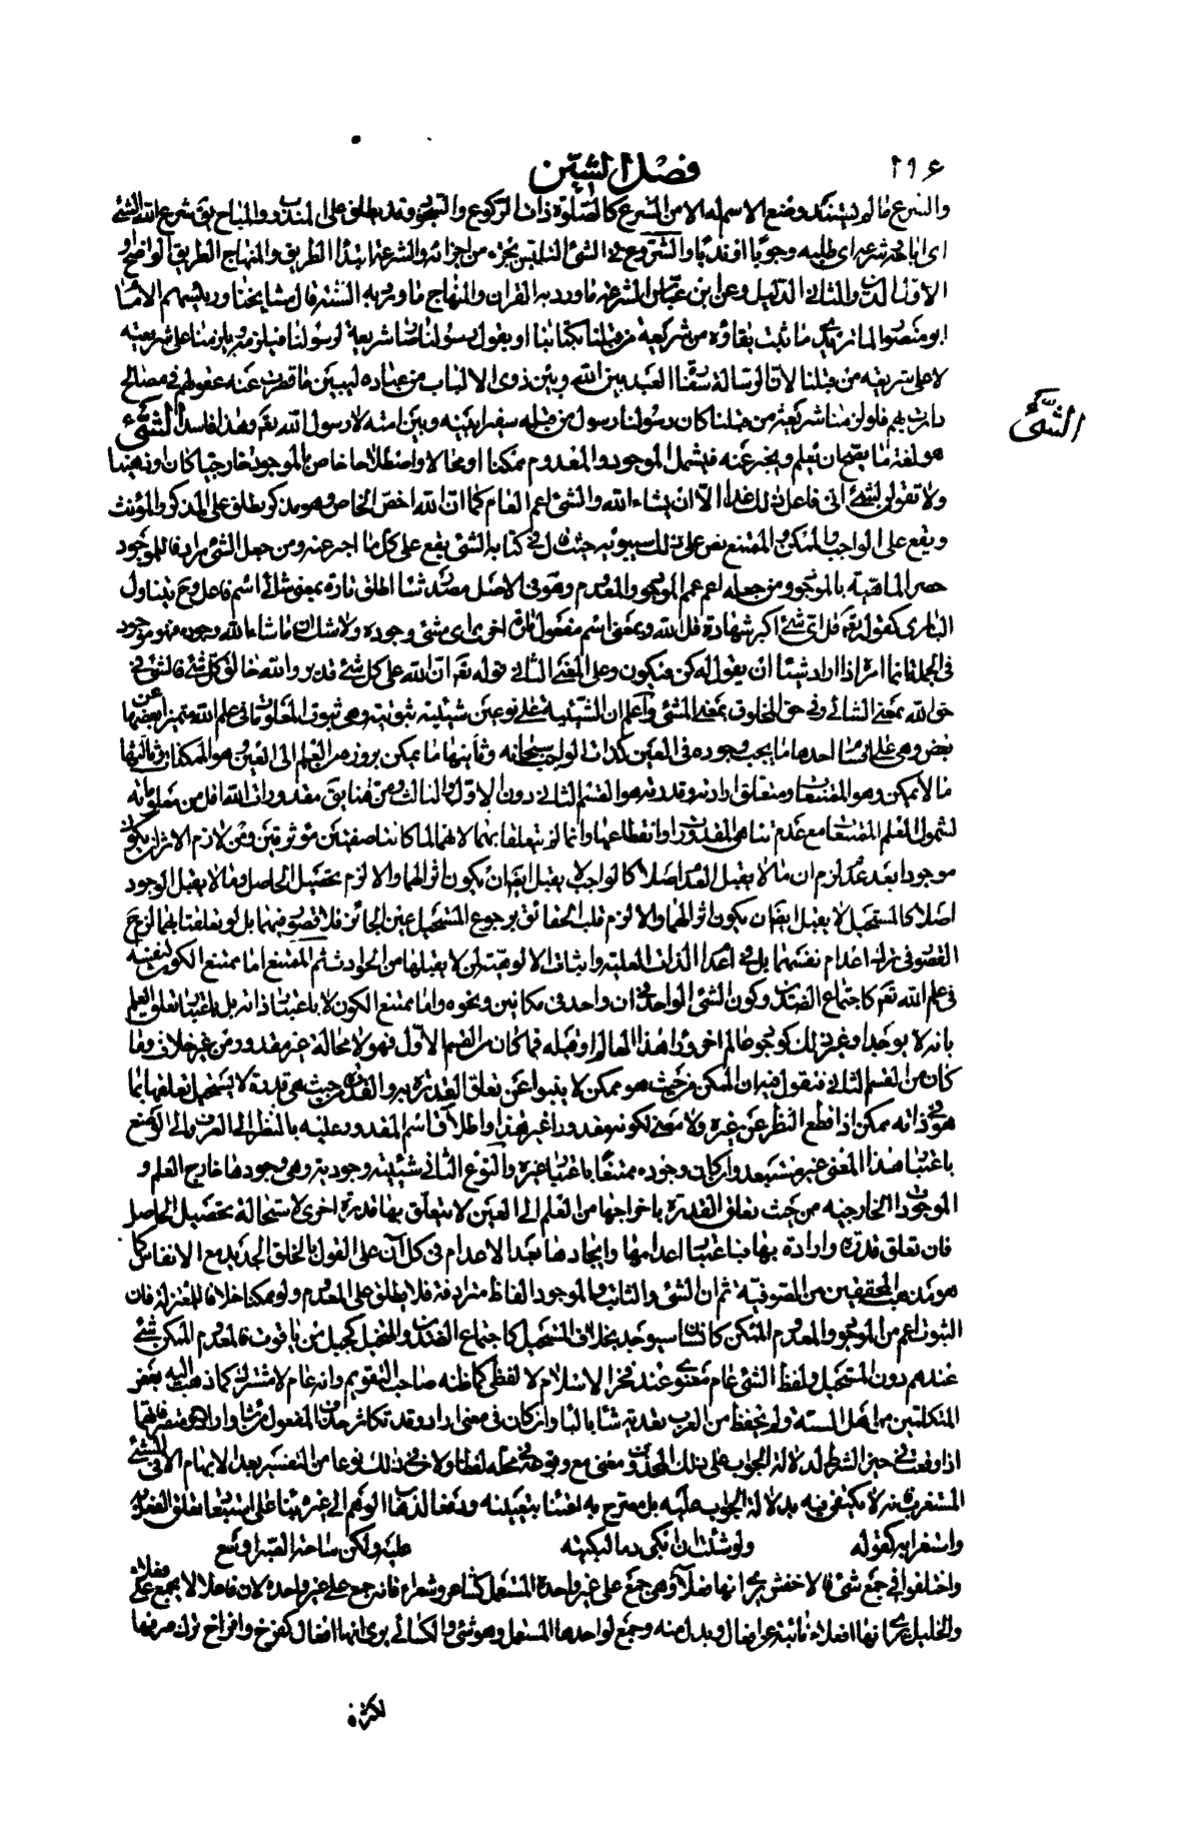 ٢٩٤ فصل الشين
والشرع ما لم يستند وضع الاسم له الا من الشرع كالصلوة ذات الركوع والسجود وقد يطلق على المندوب والمباح يقال شرع الله الشئ
اى اباحه وشرعه اى طلبه وجوبا او ندبا والشروع فى الشئ التلبس بجزء من اجزائه والشرعة ابتداء الطريق والمنهاج الطريق الواضح او
الاول الدين والثانى الدليل وعن ابن عباس الشرعة ما ورد به القران والمنهاج ما ورد به السنة قال مشايخنا ورئيسهم الامام
ابو منصور الماتريدى ما ثبت بقاؤه من شريعة من قبلنا بكتابنا او بقول رسولنا صار شريعة لرسولنا فيلزمه ويلزمنا على شريعته
لا على شريعة من قبلنا لان الرسالة سفارة العبد بين الله وبين ذوى الالباب من عباده ليبين ما قصرت عنه عقولهم فى مصالح
دارهم فلو لزمنا شريعة من قبلنا كان رسولنا رسول من قبله سفيرا بينه وبين امته لا رسول الله تعالى وهذا فاسد الشئ
الشئ
هو لغة ما يصح ان يعلم ويخبر عنه فيشمل الموجود والمعدوم ممكنا او محالا واصطلاحا خاص بالموجود خارجيا كان او ذهنيا
ولا تقولن لشئ انى فاعل ذلك غدا الا ان يشاء الله والشئ اعم العام كما ان الله اخص الخاص وهو مذكر يطلق على المذكر والمؤنث
ويقع على الواجب والممكن والممتنع نص على ذلك سيبويه حيث قال فى كتابه الشئ يقع على كل ما اخبر عنه ومن جعل الشئ مرادفا للموجود
حصر الماهية بالموجود ومن جعله اعم عمم الموجود والمعدوم وهو فى الاصل مصدر شاء اطلق تارة بمعنى شاء اى اسم فاعل وح يتناول
البارى كقوله تعالى قل اى شئ اكبر شهادة قل الله وبمعنى اسم مفعول تارة اخرى اى مشئ وجوده ولا شك ان ما شاء الله وجوده فهو موجود
فى الجملة انما امره اذا اراد شيئا ان يقول له كن فيكون وعلى المعنى الثانى قوله تعالى ان الله على كل شئ قدير والله خالق كل شئ فالشئ فى
حق الله بمعنى الشائى وفى حق المخلوق بمعنى المشئ واعلم ان الشيئية على نوعين شيئية ثبوتية وهى ثبوت المعلومات فى علم الله متميزا بعضها عن
بعض وهى على اقسام احدها ما يجب وجوده فى العين كذات الواجب سبحانه وثانيها ما يمكن بروزه من العلم الى العين وهو الممكنات وثالثها
ما لا يمكن وهو الممتنعات ومتعلق ارادته وقدرته هو القسم الثانى دون الاول والثالث ومن هنا يقال مقدورات الله اقل من معلوماته
لشمول العلم الممتنعات مع عدم تناهى المقدورات وانقطاعها وانما لم تتعلقا بهما لانهما لما كانتا صفتين مؤثرتين ومن لازم الاثر ان يكون
موجودا بعد عدم لزم ان ما لا يقبل العدم اصلا كالواجب لا يقبل ان يكون اثرا لهما والا لزم تحصيل الحاصل وما لا يقبل الوجود
اصلا كالمستحيل لا يقبل ايضا ان يكون اثرا لهما والا لزم قلب الحقائق برجوع المستحيل عين الجائز فلا قصور فيهما بل لو تعلقتا بهما لزم ح
القصور فى ترك اعدام نفسهما بل فى اعدام الذات العلية واثبات الالوهية لمن لا يقبلها من الحوادث ثم الممتنع اما ممتنع الكون لنفسه
فى علم الله تعالى كاجتماع الضدين وكون الشئ الواحد فى ان واحد فى مكانين ونحوه واما ممتنع الكون لا باعتبار ذاته بل باعتبار تعلق العلم
بانه لا يوجد او غير ذلك كوجود عالم اخر وراء هذا العالم او قبله فما كان من القسم الاول فهو لا محالة غير مقدور من غير خلاف وما
كان من القسم الثانى فنقول فيه ان الممكن من حيث هو ممكن لا ينبو عن تعلق القدرة به والقدرة من حيث هى قدرة لا يستحيل تعلقها بما
هو فى ذاته ممكن اذا قطع النظر عن غيره ولا معنى لكونه مقدورا غير هذا واطلاق اسم المقدور عليه بالنظر الى العرف والى الوضع
باعتبار هذا المعنى غير مستبعد وان كان وجوده ممتنعا باعتبار غيره والنوع الثانى شيئية وجودية وهى وجودها خارج العلم و
الموجودات الخارجية من حيث تعلق القدرة باخراجها من العلم الى العين لا يتعلق بها قدرة اخرى لاستحالة تحصيل الحاصل
فان تعلق قدرة وارادة بها فباعتبار اعدامها وايجادها بعد الاعدام فى كل آن على القول بالخلق الجديد مع الانفاس كما
هو مذهب المحققين من الصوفية ثم ان الشئ والثابت والموجود الفاظ مترادفة فلا يطلق على المعدوم ولو ممكنا خلافا للمعتزلة فان
الثبوت اعم من الموجود والمعدوم الممكن كانسان سيوجد بخلاف المستحيل كاجتماع الضدين والمتخيل كجبل من ياقوت فالمعدوم الممكن شئ
عندهم دون المستحيل ولفظ الشئ عام معنوى عند فخر الاسلام لا لفظى كما ظنه صاحب التقويم وانه عام لا مشترك كما ذهب اليه بعض
المتكلمين من اهل السنة ولم يحفظ من العرب تعدية شاء بالباء وان كان فى معنى اراد وقد تكاثر حذف المفعول من شاء واراد ومتصرفاتهما
اذا وقعت فى حيز الشرط لدلالة الجواب على ذلك المحذوف معنى مع وقوعه فى محله لفظا ولا فى ذلك نوعا من التفسير بعد الابهام الا فى الشئ
المستغرب فانه لا يكتفى فيه بدلالة الجواب عليه بل يصرح به اعتناء بتعيينه ودفعا لذهاب الوهم الى غيره بناء على استبعاد تعلق الفعل به
واستغرابه كقوله ولو شئت ان ابكى دما لبكيته عليه ولكن ساحة الصبر اوسع
واختلفوا فى جمع شئ فالاخفش يرى انها فعلاء وهى جمع على غير واحده المستعمل كشاعر وشعراء فانه جمع على غير واحده لان فاعلا لا يجمع على فعلاء
والخليل يرى انها افعلاء نائبة عن افعال وبدل منه وجمع لواحدها المستعمل وهو شئ والكسائى يرى انها افعال كفرخ وافراخ ترك صرفها
لكثرة